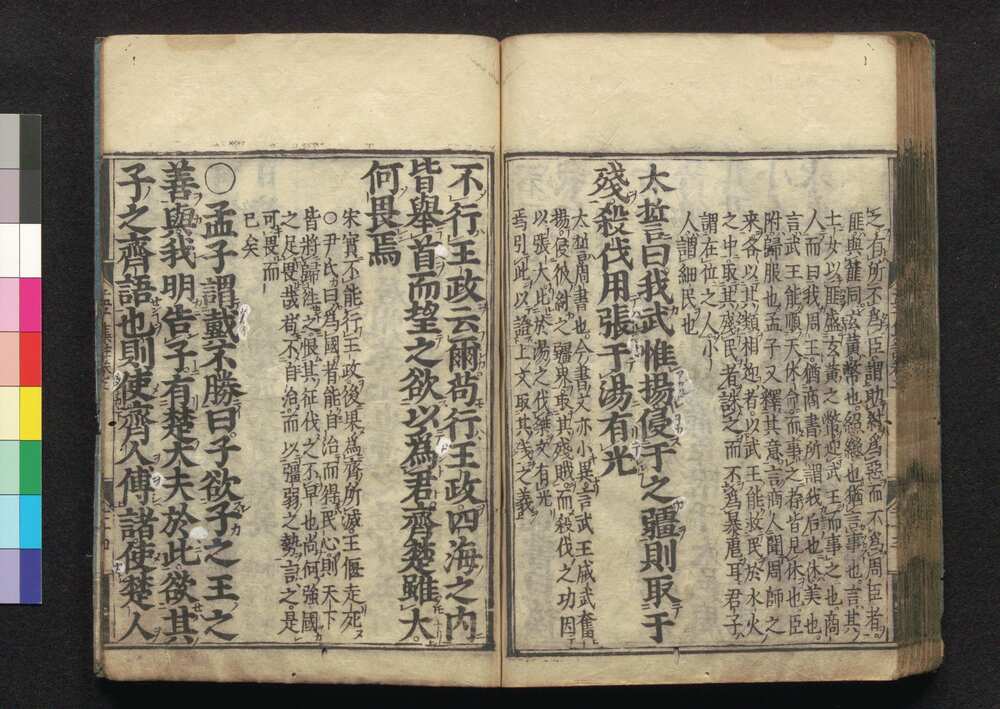 之有所不爲臣謂助紂爲惡而不爲周臣者
匪與篚同玄黃幣也紹繼也猶言事也言其
士女以篚盛玄黃之幣迎武王而事之也商
人而曰我周王猶商書所謂我后也休美也
言武王能順天休命而事之者皆見休也臣
附歸服也孟子又釋其意言商人聞周師之
來各以其類相迎者以武王能救民於水火
之中取其殘民者誅之而不爲暴虐耳君子
謂在位之人小
人謂細民也
太誓曰我武惟揚侵于之疆則取于
殘殺伐用張于湯有光
太誓周書也今書文亦小異言武王威武奮
揚侵彼紂之疆界取其殘賊而殺伐之功因
以張大比於湯之伐桀又有光
焉引此以證上文取其殘之義
不行王政云爾苟行王政四海之内
皆舉首而望之欲以爲君齊楚雖大
何畏焉
宋實不能行王政後果爲齊所滅王偃走死
○尹氏曰爲國者能自治而得民心則天下
皆將歸往之恨其征伐之不早也尚何強國
之足畏哉苟不自治而以彊弱之勢言之是
可畏而
已矣
○孟子謂戴不勝曰子欲子之王之
善與我明告子有楚大夫於此欲其
子之齊語也則使齊人傅諸使楚人